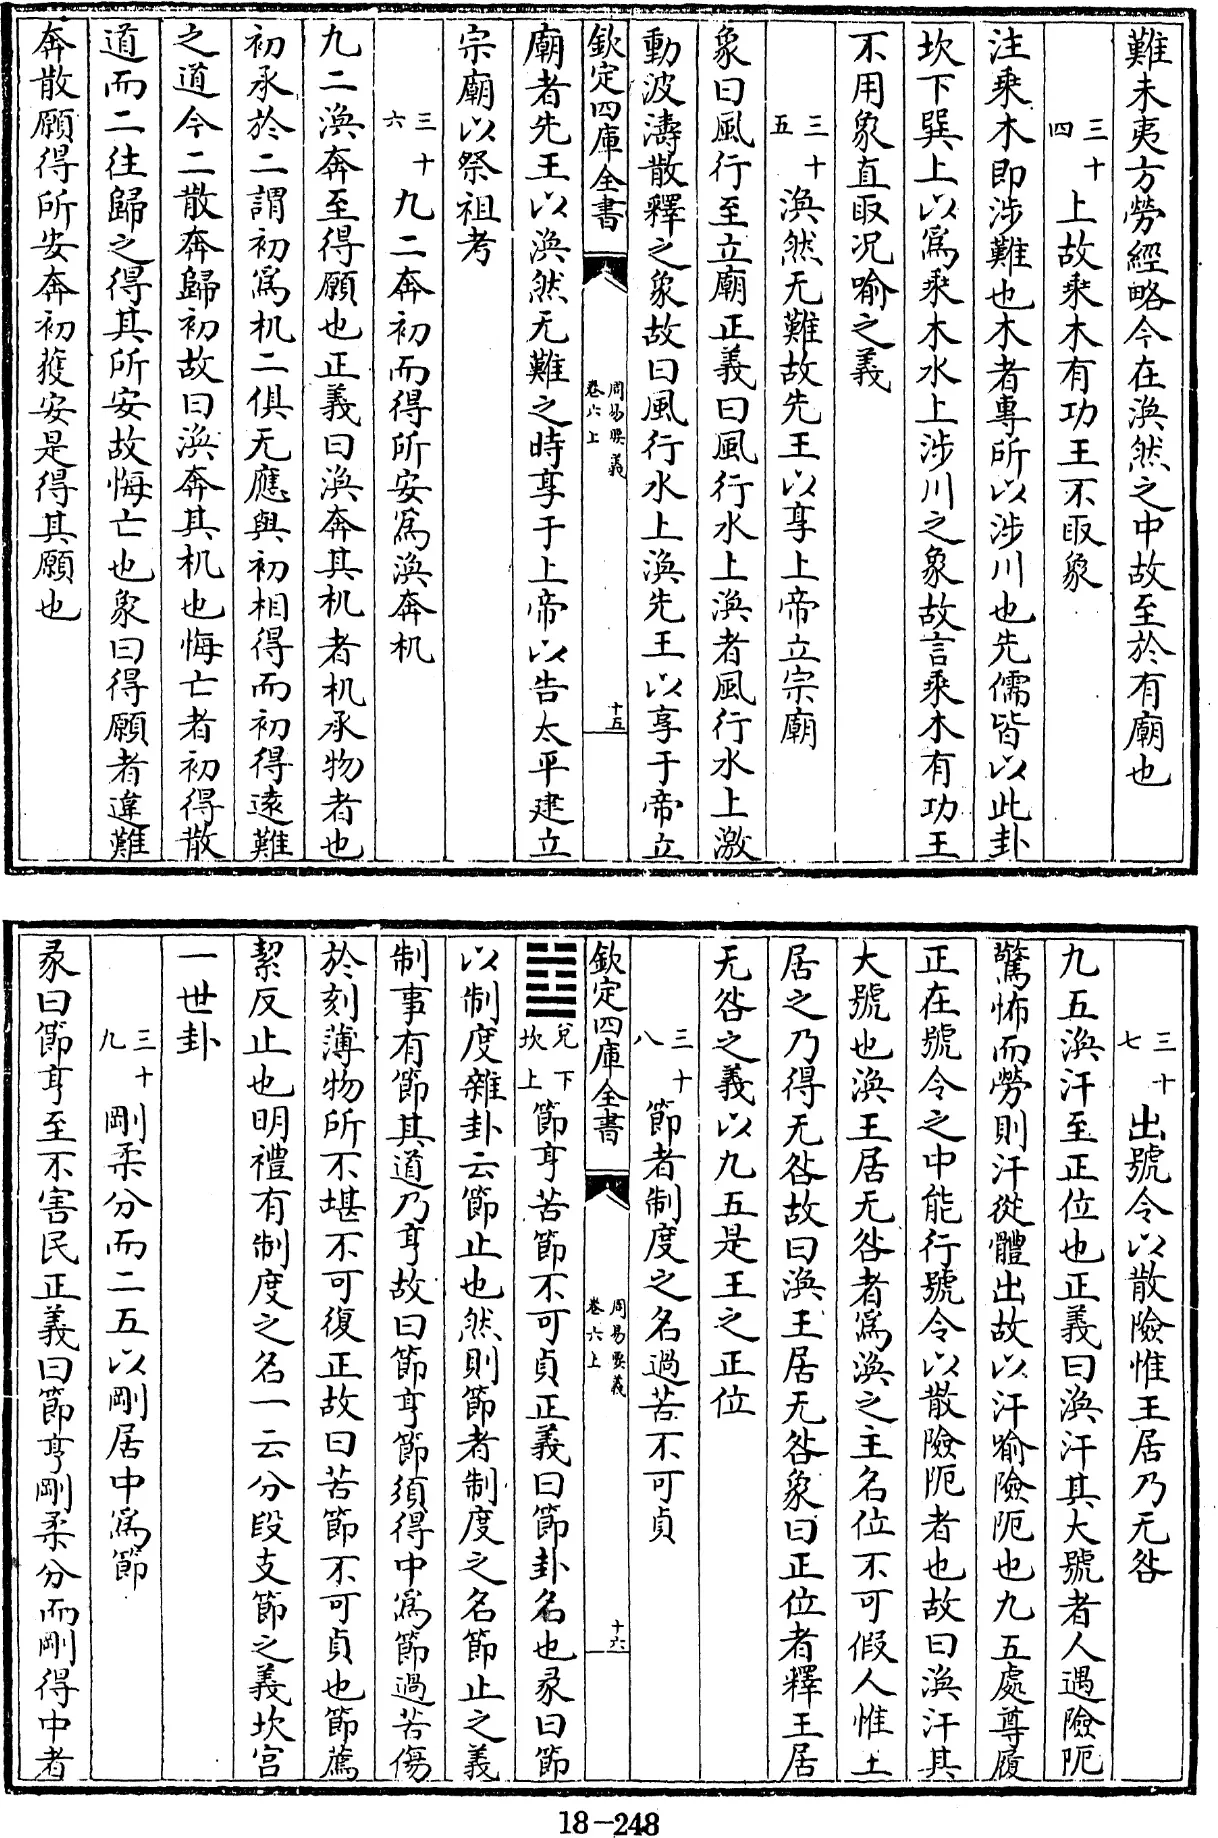 難未夷方勞經略今在渙然之中故至於有廟也
三十四　上故乘木有功王不取象
注乘木即涉難也木者專所以涉川也先儒皆以此卦
坎下巽上以爲乘木水上涉川之象故言乘木有功王
不用象直取況喻之義
三十五　渙然无難故先王以享上帝立宗廟
象曰風行至立廟正義曰風行水上渙者風行水上激
動波濤散釋之象故曰風行水上渙先王以享于帝立
欽定四庫全書　周易要義卷六上　十五
廟者先王以渙然无難之時享于上帝以告太平建立
宗廟以祭祖考
三十六　九二奔初而得所安爲渙奔机
九二渙奔至得願也正義曰渙奔其机者机承物者也
初承於二謂初爲机二俱无應與初相得而初得遠難
之道今二散奔歸初故曰渙奔其机也悔亡者初得散
道而二往歸之得其所安故悔亡也象曰得願者違難
奔散願得所安奔初獲安是得其願也
三十七　出號令以散險惟王居乃无咎
九五渙汗至正位也正義曰渙汗其大號者人遇險阨
驚怖而勞則汗從體出故以汗喻險阨也九五處尊履
正在號令之中能行號令以散險阨者也故曰渙汗其
大號也渙王居无咎者爲渙之主名位不可假人惟王
居之乃得无咎故曰渙王居无咎象曰正位者釋王居
无咎之義以九五是王之正位
三十八　節者制度之名過苦不可貞
欽定四庫全書　周易要義卷六上　十六
䷻兌下坎上節亨苦節不可貞正義曰節卦名也彖曰節
以制度雜卦云節止也然則節者制度之名節止之義
制事有節其道乃亨故曰節亨節須得中爲節過苦傷
於刻薄物所不堪不可復正故曰苦節不可貞也節薦
絜反止也明禮有制度之名一云分段支節之義坎宮
一世卦
三十九　剛柔分而二五以剛居中爲節
彖曰節亨至不害民正義曰節亨剛柔分而剛得中者
18-248